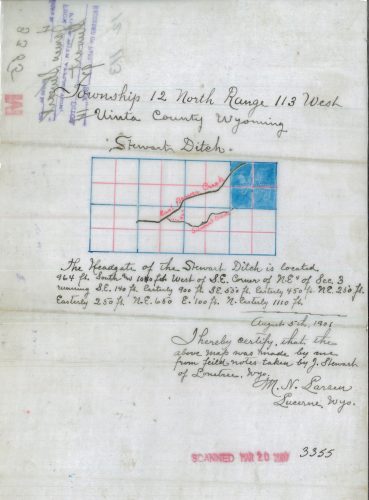 Township 12 North Range 113 West
Uinta County Wyoming
Stewart Ditch.
East Beaver Creek
The Headgate of the Stewart Ditch is located
964 ft. South and 1080 feet West of S.E. Corner of N.E¼ of Sec. 3
running S.E. 140 ft. Easterly 900 ft. S.E. 530 ft. Easterly 450 ft. N.E. 250 ft.
Easterly 250 ft. N.E. 650 E. 100 ft. N. Easterly 1100 ft.
August 5th, 1901
I hereby certify, that the
above map was made by me
from field notes taken by J. Stewart
of Lonetree, Wyo.
M. N. Larsen
Lucerne Wyo.
SCANNED MAR 20
3355